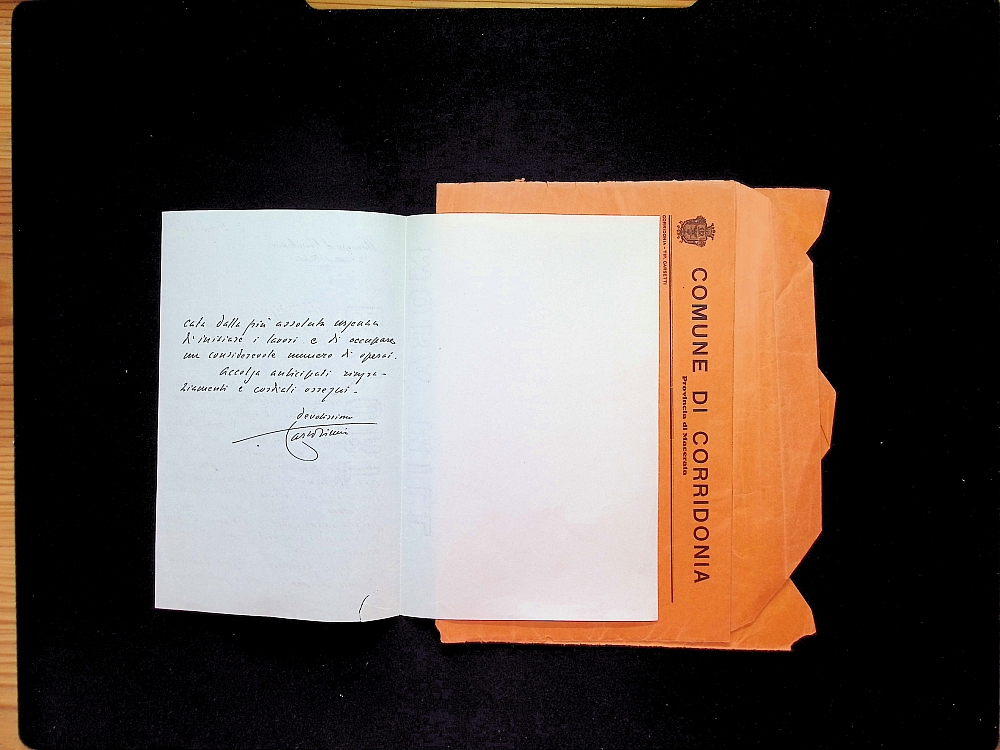 cata dalla più assoluta urgenza
d'iniziare i lavori e di occupare
un considerevole numero di operai.
Accolga anticipati ringra-
ziamenti e cordiali ossequi.
devotissimo
COMUNE DI CORRIDONIA
Provincia di Macerata
CORRIDONIA - TIP.